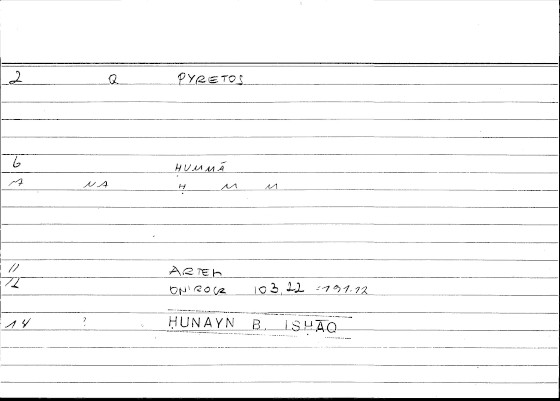 2 Q PYRETOS
6 ḤUMMĀ
1 NA Ḥ M M
11 ARTEM
12 ONIROCR 103.22 = 191.12
14 ? ḤUNAYN B. ISḤĀQ